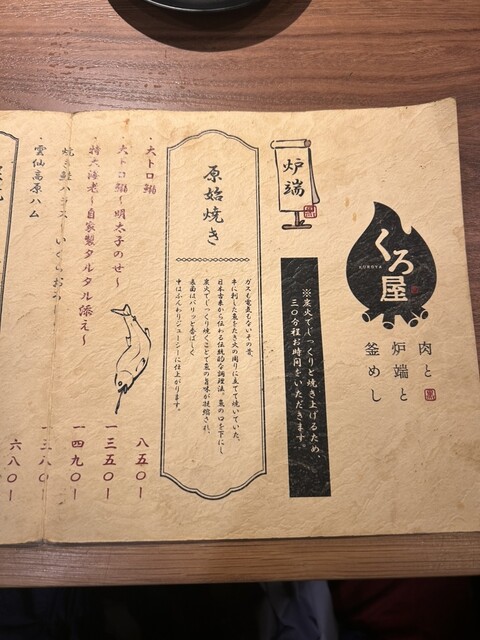 くろ屋
KUROYA
肉と
炉端と
釜めし
※炭火でじっくりと焼き上げるため、
三〇分程お時間をいただきます。
炉端
原始焼き
ガスも電気もないその昔、
串に刺した魚をたき火の周りに立てて焼いていた、
日本古来から伝わる伝統的な調理法。魚の口を下にし
炭火でじっくり焼くことで魚の旨味が凝縮され、
表面はパリッと香ばしく
中はふんわりジューシーに仕上がります。
・大トロ鰯 八五〇ー
・大トロ鰯〜明太子のせ〜 一三五〇ー
・特大海老〜自家製タルタル添え〜 一四九〇ー
・焼き鮭ハラス〜いくらおろし〜
・雲仙高原ハム 六八〇ー